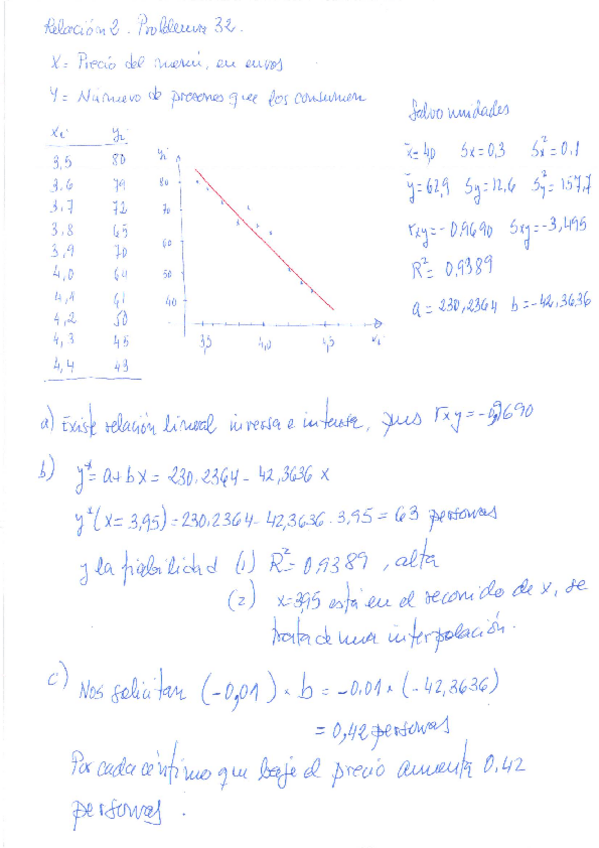 Relación 2. Problema 32.
X = Precio del menú, en euros
Y = Número de personas que los consumen
Salvo unidades
xi yi
3,5 80
3.6 79
3.7 72
3.8 65
3,9 70
4,0 64
4,1 61
4,2 50
4,3 45
4,4 43
yi
80
70
60
50
40
3,5 4,0 4,5 xi
x̄=4,0 Sx=0,3 Sx²=0.1
ȳ=62,9 Sy=12,6 Sy²=157,7
rxy=-0,9690 Sxy=-3,495
R²=0,9389
a=230,2364 b=-42,3636
a) Existe relación lineal inversa e intensa, pues rxy=-0,9690
b) y*=a+bx=230.2364-42,3636 x
y*(x=3,95)=230.2364-42,3636.3,95=63 personas
y la fiabilidad (1) R²=0,9389, alta
(2) x=3,95 está en el recorrido de x, se
trata de una interpolación.
c) Nos solicitan (-0,01) · b = -0.01 · (-42,3636)
= 0,42 personas
Por cada céntimo que baje el precio aumenta 0.42
personas.